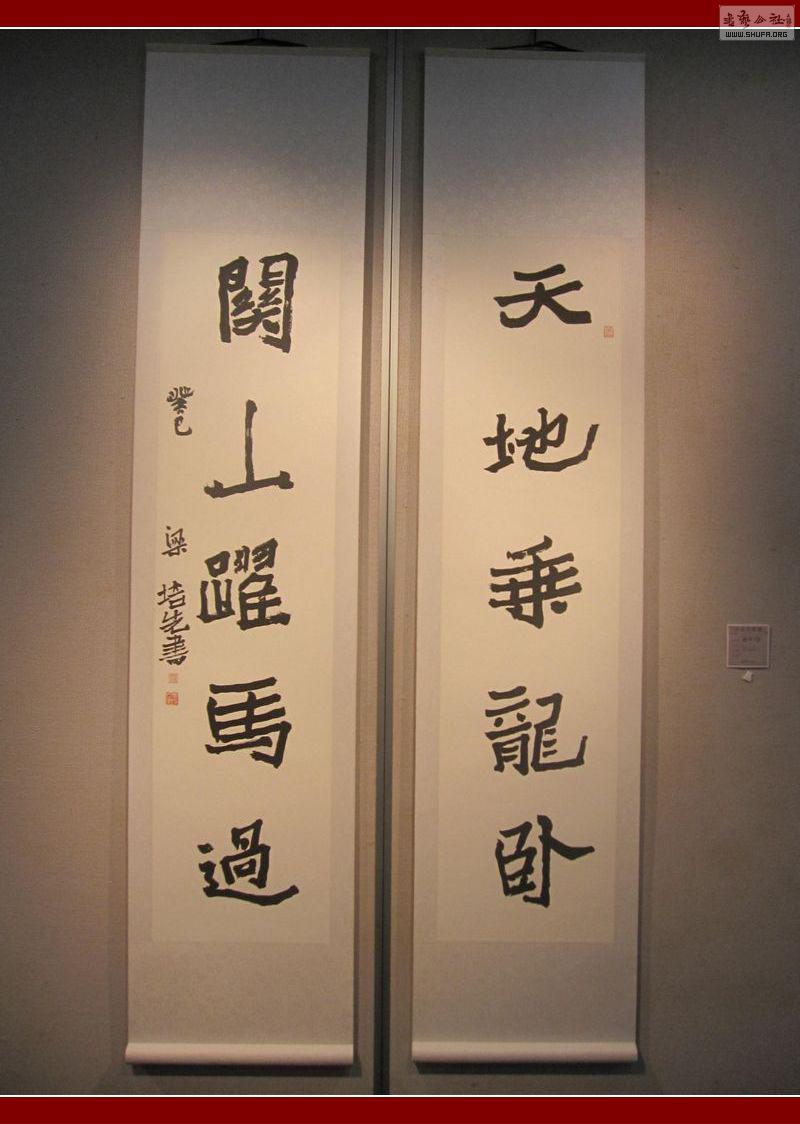 天地乗龍卧
關山躍馬過
癸巳
梁培先書
书艺公社
WWW.SHUFA.ORG